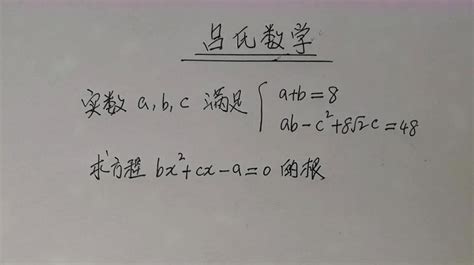 吕氏数学
实数 a,b,c 满足 { a+b=8
ab-c²+8√2c=48
求方程 bx²+cx-a=0 的根